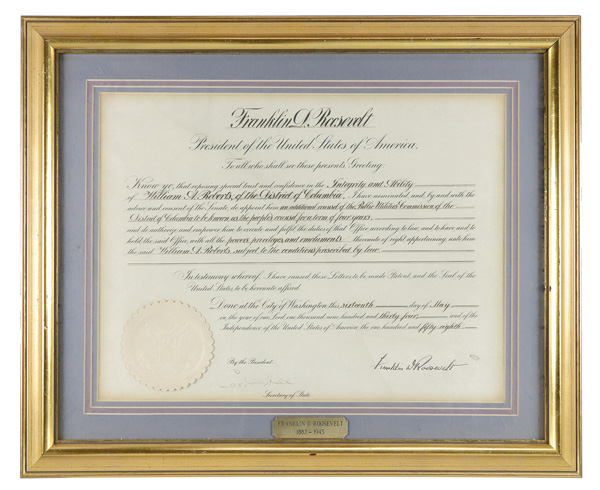 Franklin D. Roosevelt
President of the United States of America,
To all who shall see these presents, Greeting:
Know ye, that reposing special trust and confidence in the Integrity and Ability
of William A. Roberts, of the District of Columbia, I have nominated, and, by and with the
advice and consent of the Senate, do appoint him an additional counsel of the Public Utilities Commission of the
District of Columbia to be known as the people's counsel for a term of four years
and do authorize and empower him to execute and fulfil the duties of that Office according to law, and to have and to
hold the said Office, with all the powers, privileges, and emoluments thereunto of right appertaining, unto him
the said William A. Roberts, subject to the conditions prescribed by law.
In testimony whereof, I have caused these Letters to be made Patent, and the Seal of the
United States to be hereunto affixed.
Done at the City of Washington this sixteenth day of May
in the year of our Lord one thousand nine hundred and thirty-four, and of the
Independence of the United States of America the one hundred and fifty-eighth.
By the President:
Franklin D Roosevelt
Secretary of State.
FRANKLIN D. ROOSEVELT
1882 - 1945